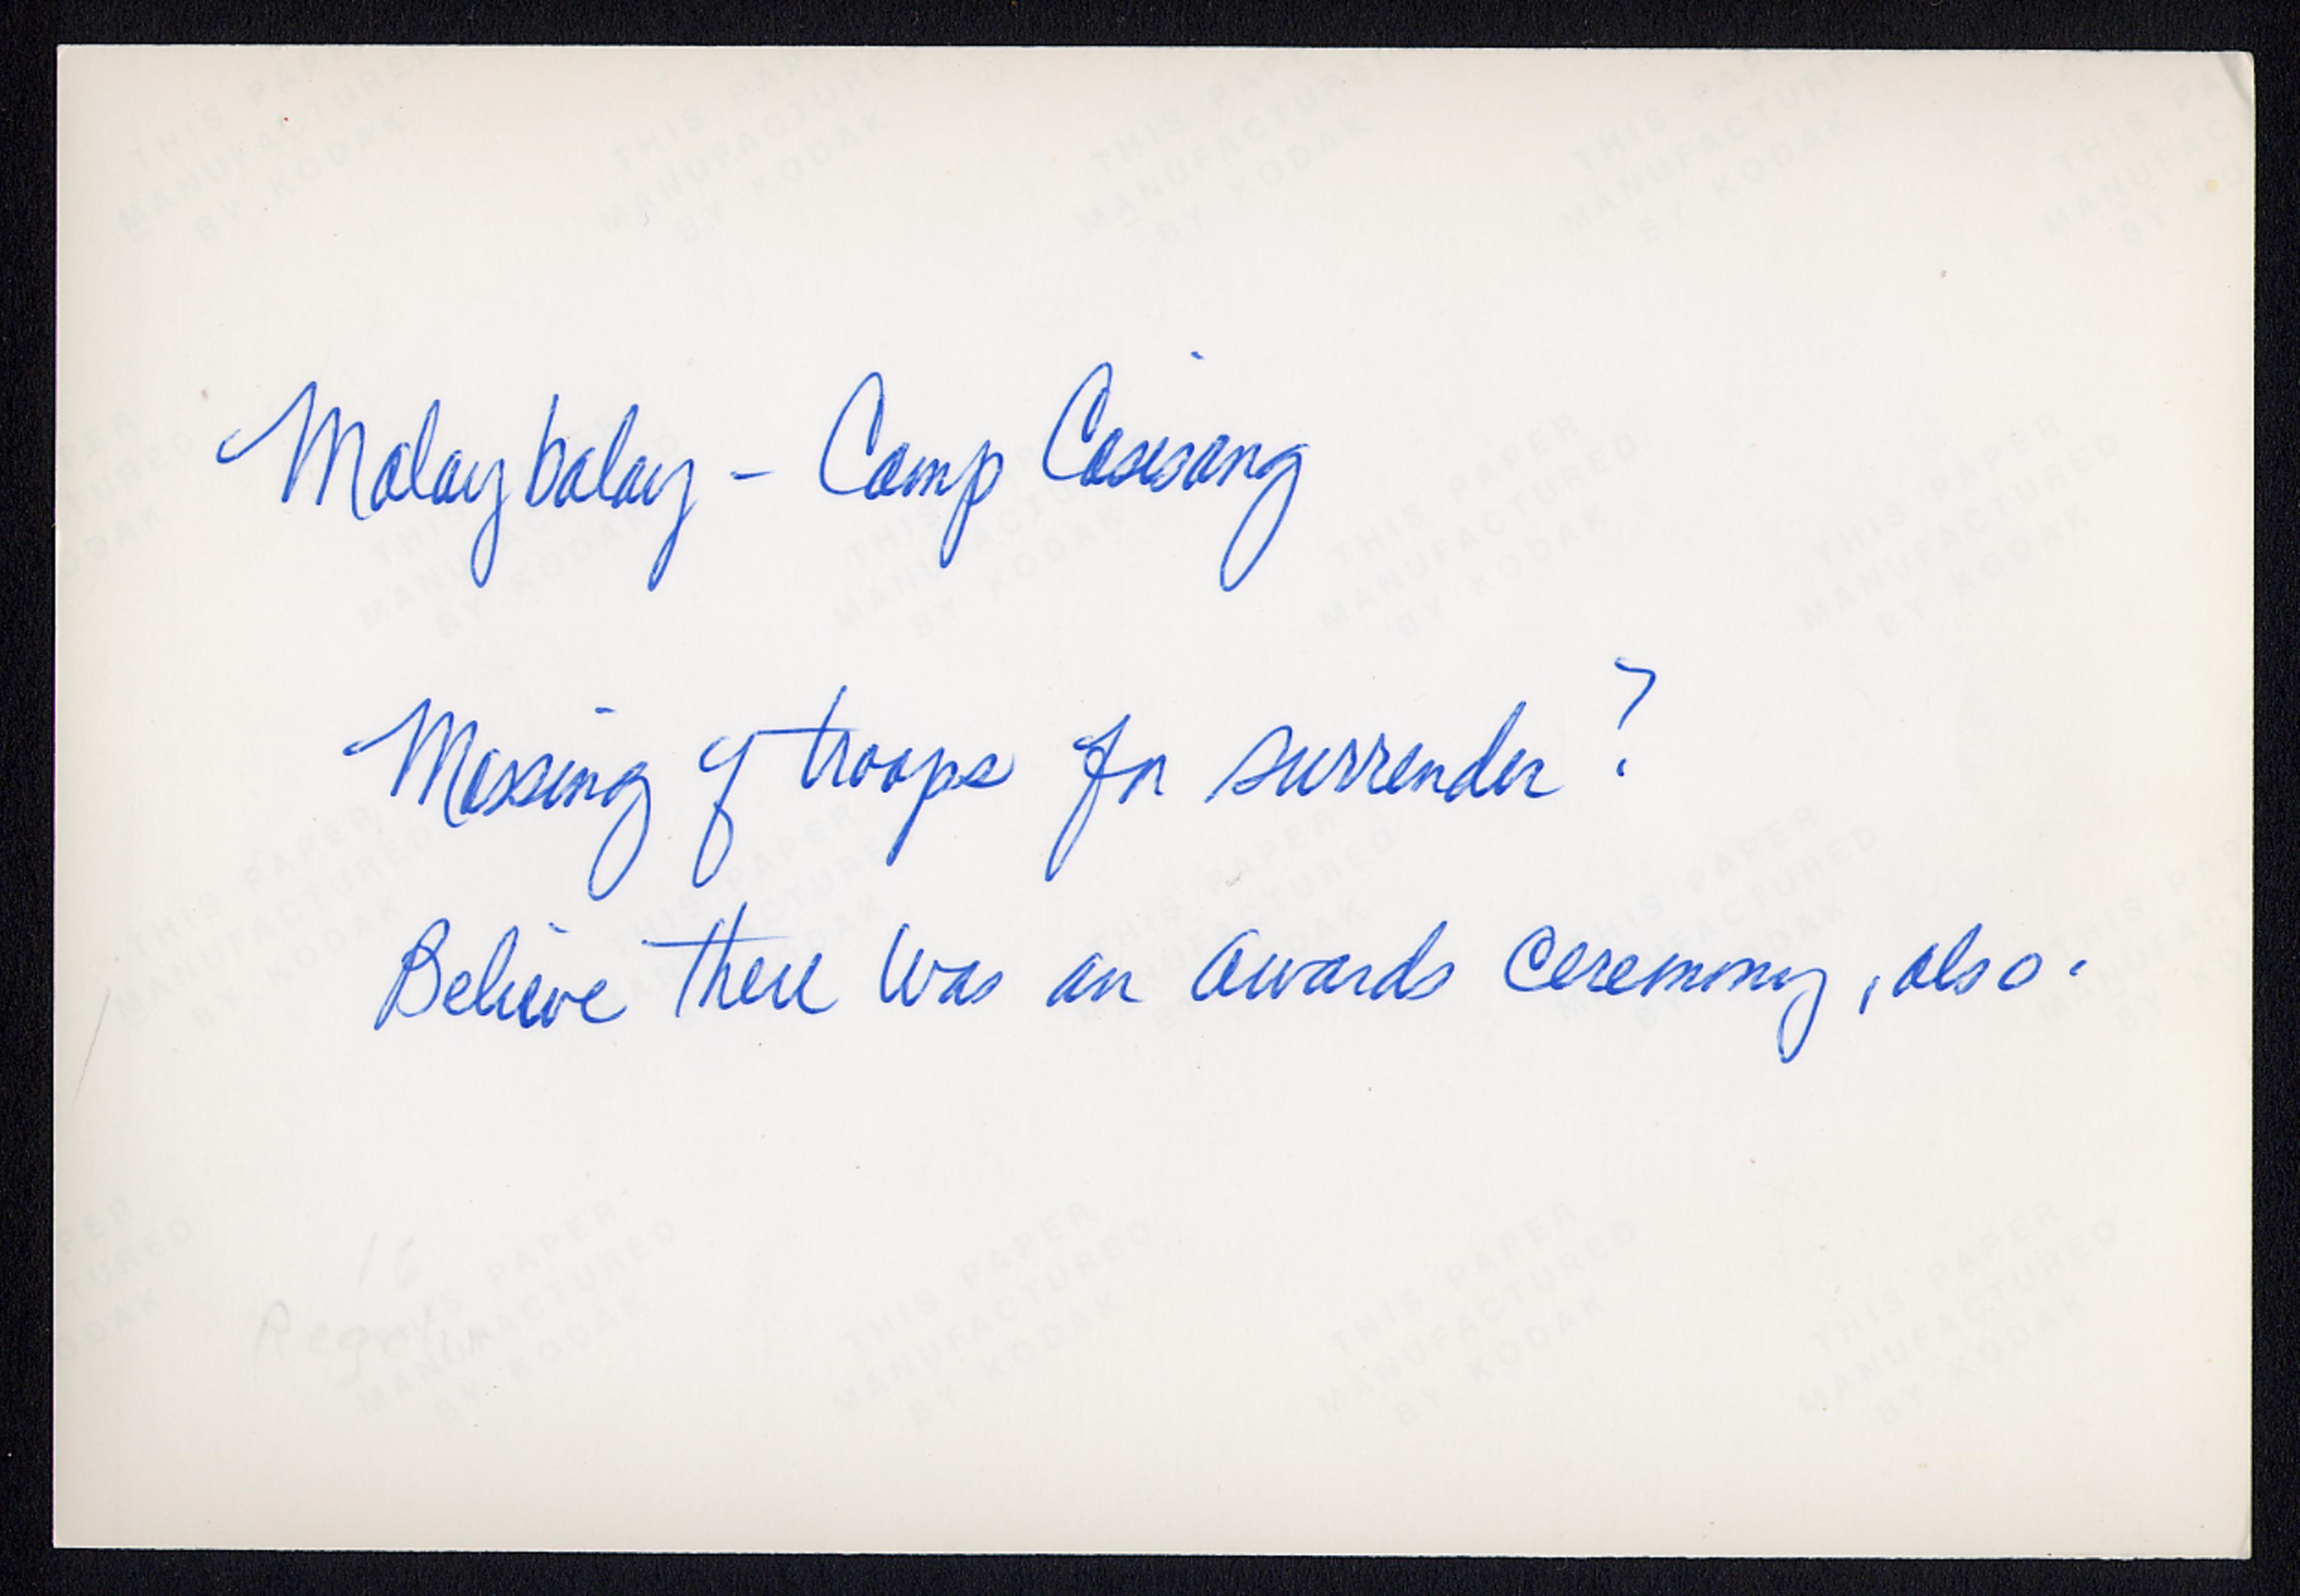 Malaybalay - Camp Casisang
Massing of troops for surrender?
Believe there was an awards ceremony, also.
16
THIS PAPER
MANUFACTURED
BY KODAK